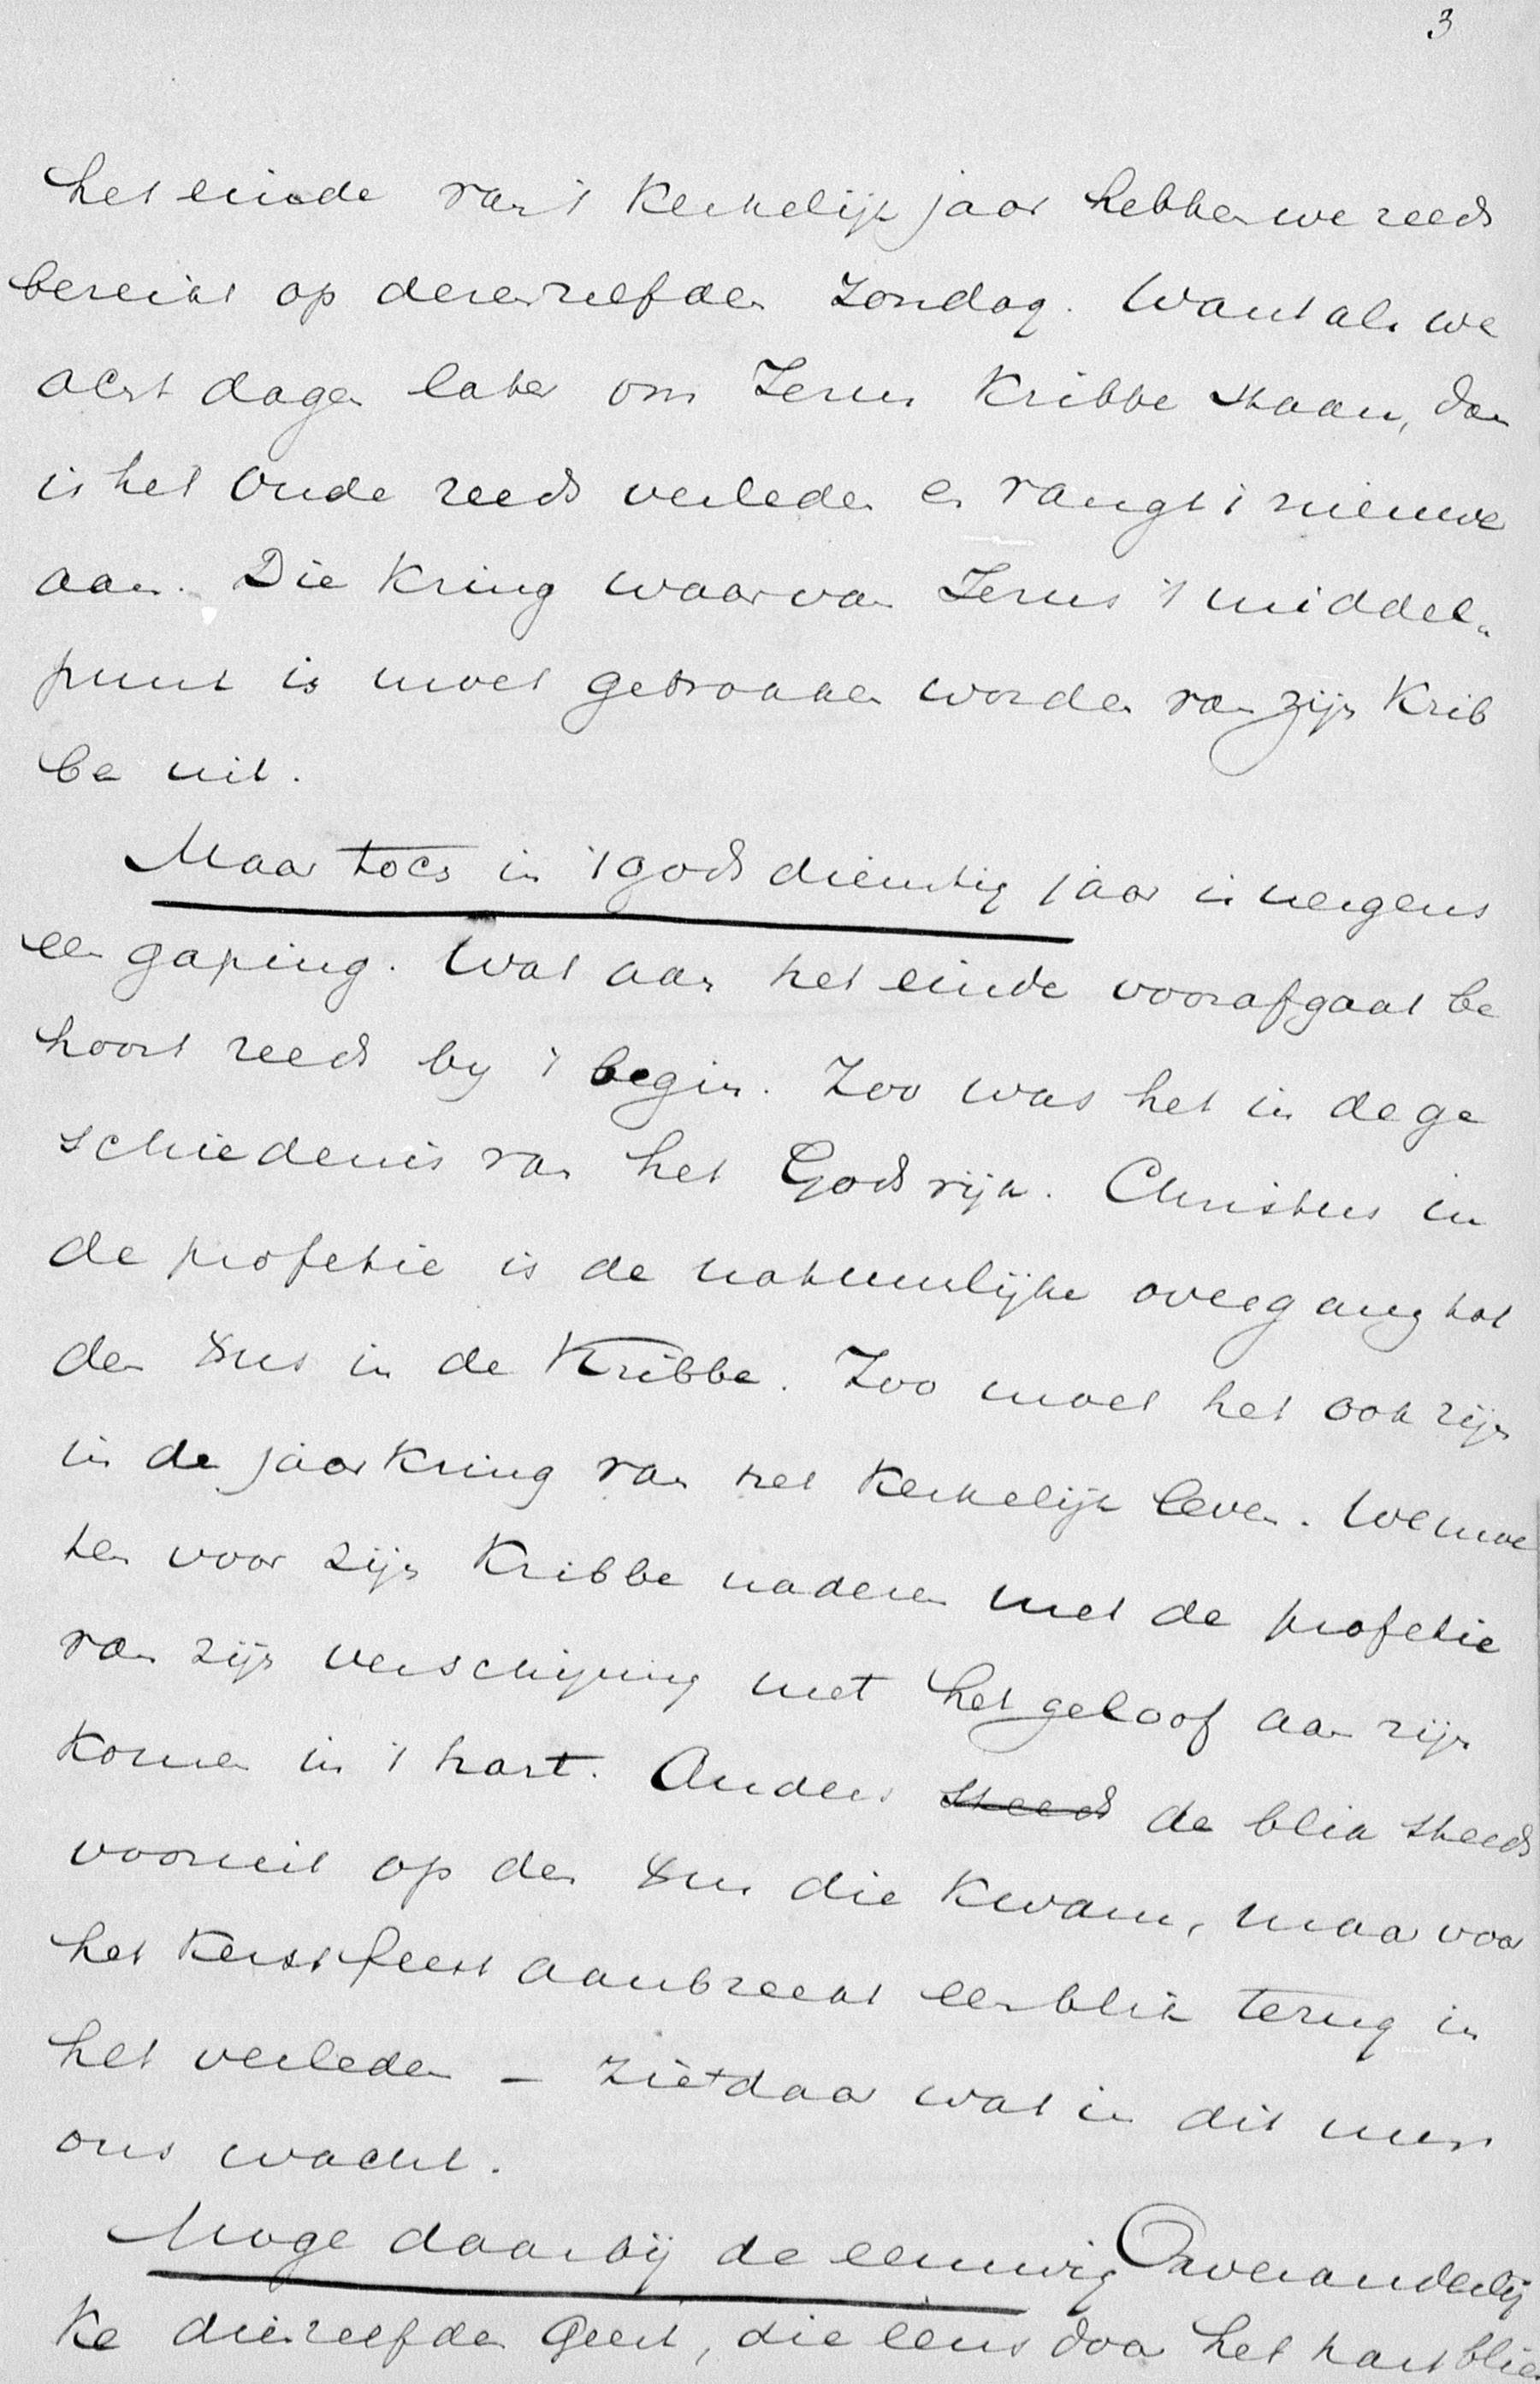 3
het einde van 't Kerkelijk jaar hebben we reeds
bereikt op denzelfden Zondag. Want als we
acht dagen later om Jezus Kribbe staan, dan
is het Oude reeds verleden en vangt 't nieuwe
aan. Die Kring waarvan Jezus 't middel„
punt is moet getrokken worden van zijn Krib
be uit.
Maar toch in 't godsdienstig jaar is nergens
een gaping. Wat aan het einde voorafgaat be
hoort reeds by 't begin. Zoo was het in de ge
schiedenis van het Godsrijk. Christus in
de profetie is de natuurlijke overgang tot
den Xus in de Kribbe. Zoo moet het ook zijn
in de jaarkring van het Kerkelijk leven. We moe
ten voor zijn Kribbe naderen met de profetie
van zijn verschijning met het geloof aan zijn
Komen in 't hart. Anders steeds de blik steeds
vooruit op den Xus die Kwam, maar voor
het Kerstfeest aanbreekt een blik terug in
het verleden – zietdaar wat in dit uur
ons wacht.
Moge daarbij de eeuwig Onveranderlij
Ke dienzelfden Geest, die eens door het hart blies